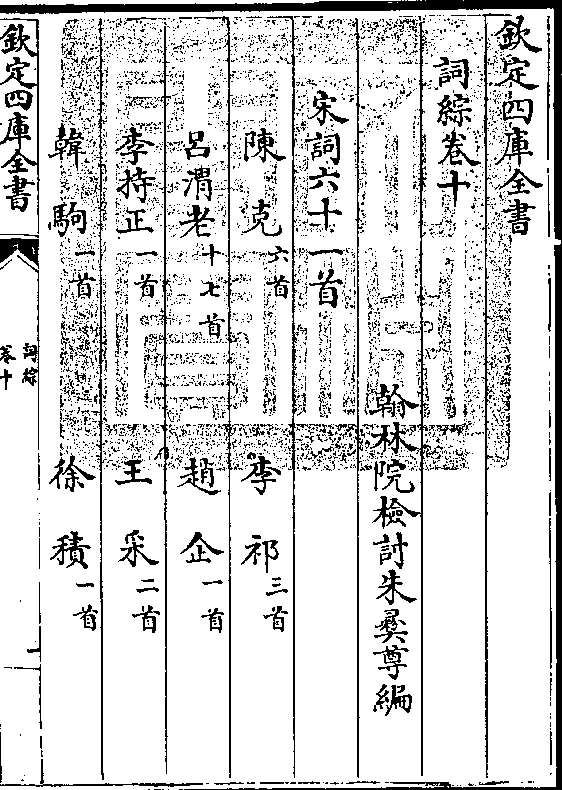 欽定四庫全書
詞綜卷十
翰林院檢討朱彛尊編
宋詞六十一首
陳克六首 李祁三首
呂渭老十七首 趙企一首
李持正一首 王采二首
韓駒一首 徐積一首
欽定四庫全書
詞綜
卷十